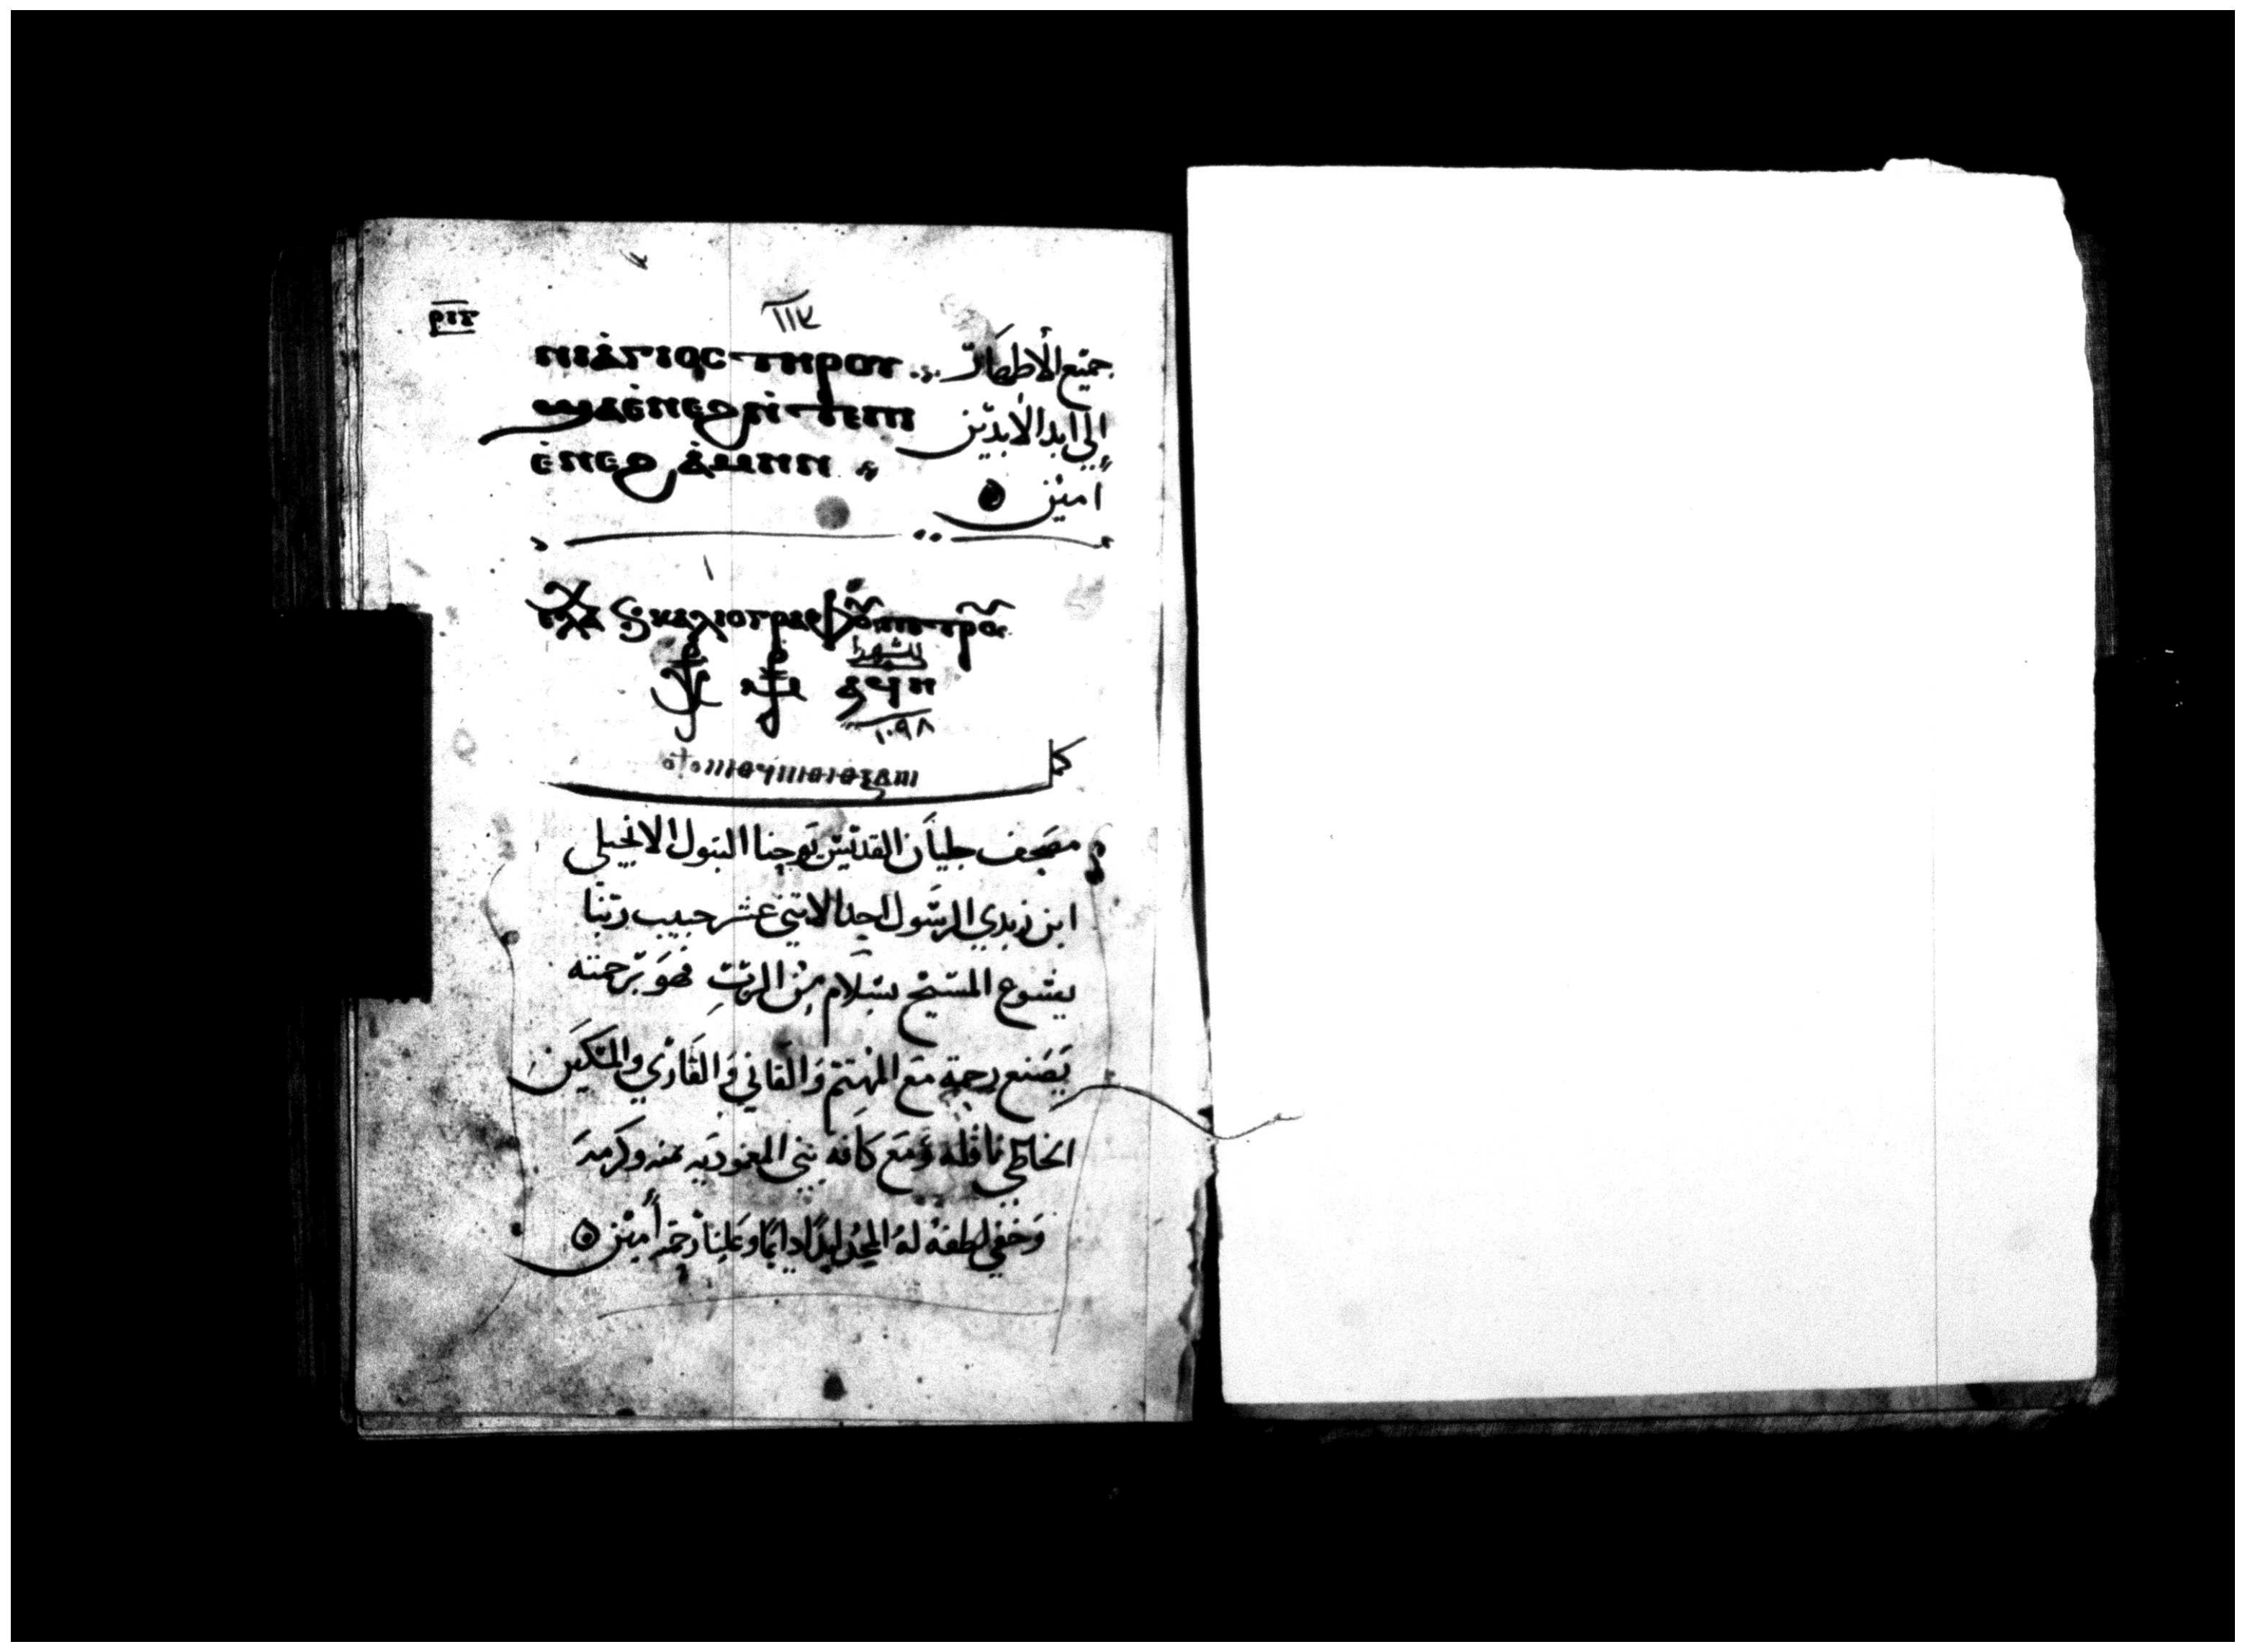 ⲛⲓⲁⲅⲓⲟⲥ ⲧⲏⲣⲟⲩ جميع الأطهار
ϣⲁⲉⲛⲉϩ ⲛⲧⲉⲡⲓ إلى ابد الابدين
ⲉⲛⲉϩ ⲁⲙⲏⲛ أمين
للشهدا
١٠٩٨
كا
مصحف جليان القديس يوحنا البتول الانجيلي
ابن زبدي الرسول احد الاثني عشر حبيب ربنا
يسوع المسيح بسلام من الرب فهو برحمته
يصنع رحمه مع المهتم والقاني والقاري والمسكين
الخاطي ناقله ومع كافه بني المعموديه بمنه وكرمه
وخفي لطفه له المجد ابدًا دايمًا وعلينا رحمته أمين